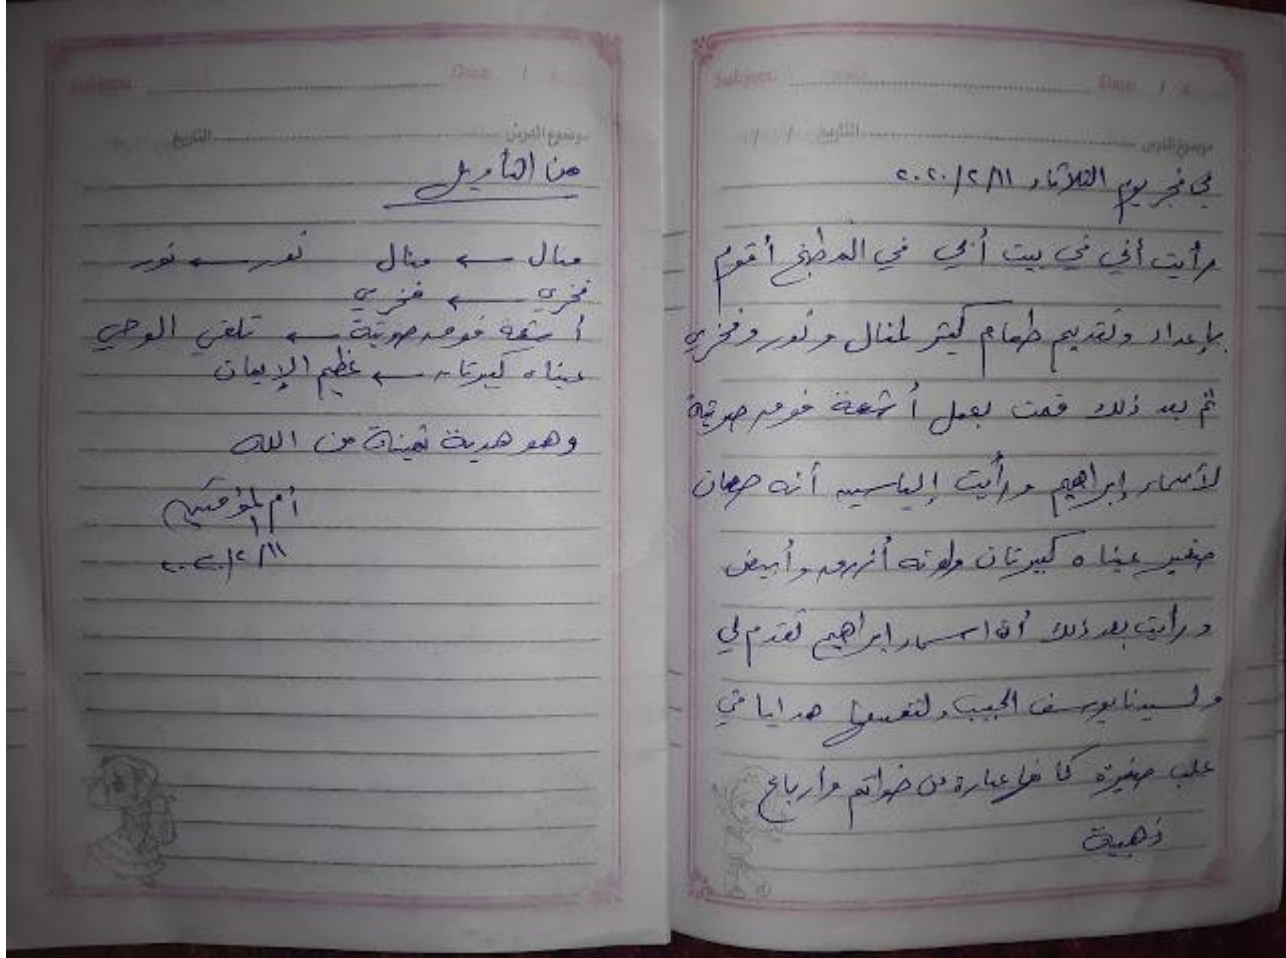 Subject: Date: / /
موضوع الدرس التاريخ / /
في فجر يوم الثلاثاء ٢٠٢٠/٢/١١
رأيت أني في بيت أبي في المطبخ أقوم
بإعداد وتقديم طعام كثير لمنال ونور وفخري
ثم بعد ذلك قمت بعمل أشعة فوق صوتية
لأسماء إبراهيم ورأيت إلياسين أنه حصان
صغير عيناه كبيرتان ولونه أزرق وأبيض
ورأيت بعد ذلك أن اسماء إبراهيم تقدم لي
ولسيدنا يوسف الحبيب ولنفسها هدايا في
علب صغيرة كأنها عبارة من خواتم وأرباع
ذهبية
Subject: Date: / /
موضوع الدرس التاريخ
من التأويل
منال ← منال نور ← نور
فخري ← فخري
أشعة فوق صوتية ← تلقي الوحي
عيناه كبيرتان ← عظيم الإيمان
وهو هدية ثمينة من الله
أم المؤمنين
٢٠٢٠/٢/١١